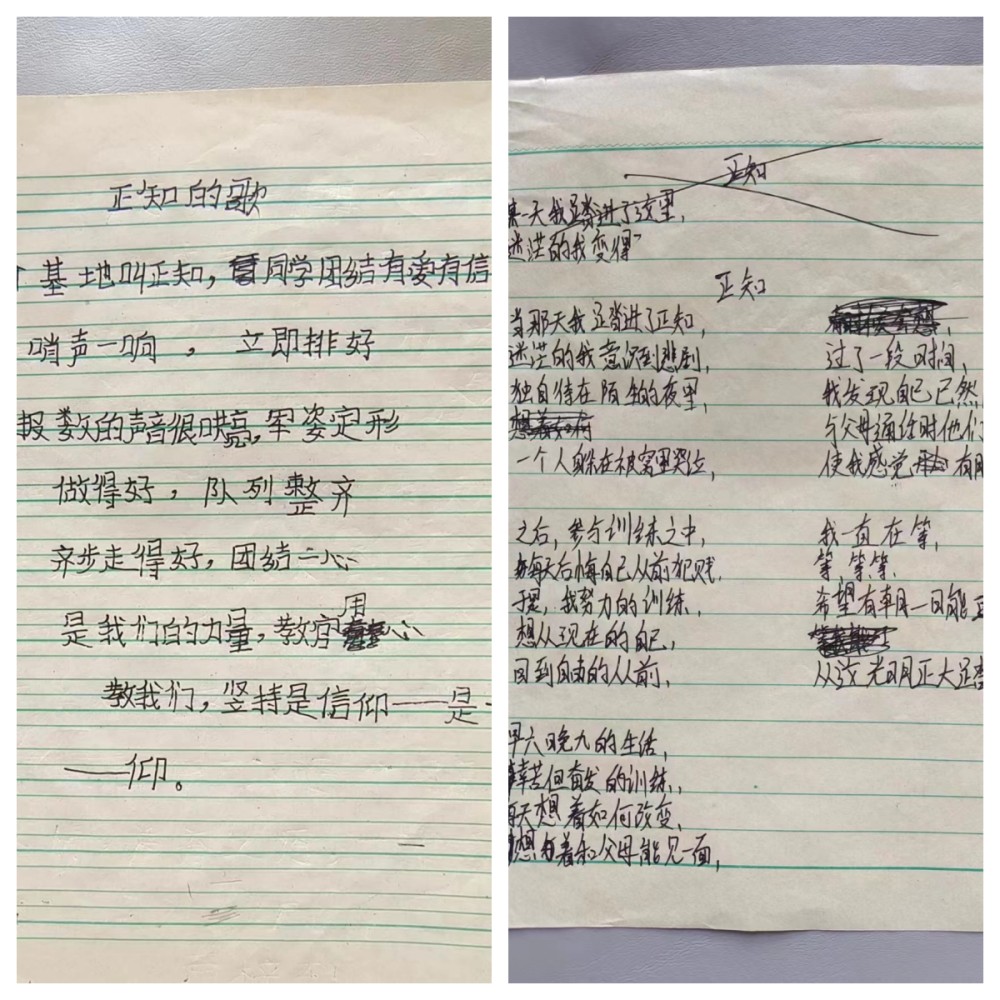 正知的歌
基地叫正知，同学团结有爱有信
哨声一响，立即排好
报数的声音很哄亮，军姿定形
做得好，队列整齐
齐步走得好，团结一心
是我们的力量，教官用心
教我们，坚持是信仰——是
——仰。
正知
某一天我踏进了这里，
迷茫的我变得
正知
当那天我踏进了正知，
迷茫的我意识到悲剧，
独自待在陌生的夜里，
想着如何
一个人躲在被窝里哭泣，
之后，参与训练之中，
每天后悔自己从前犯贱，
于是，我努力的训练，
想从现在的自己，
回到自由的从前，
早六晚九的生活，
辛苦但奋发的训练，
每天想着如何改变，
想着和父母能见一面，
过了一段时间，
我发现自己已然
与父母通话时他们
使我感觉有
我一直在等，
等，等等，
希望有朝一日能正
从这光明正大踏